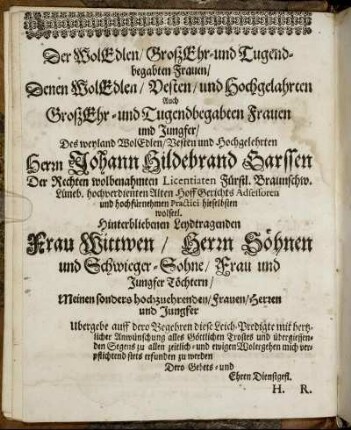 Der WolEdlen / GroßEhr-und Tugend-
begabten Frauen /
Denen WolEdlen / Vesten / und Hochgelahrten
Auch
GroßEhr-und Tugendbegabten Frauen
und Jungfer /
Des weyland WolEdlen / Vesten und Hochgelehrten
Herrn Johann Hildebrand Garssen
Der Rechten wolbenahmten Licentiaten Fürstl. Braunschw.
Lüneb. hochverdienten Alten Hoff Gerichts Adsessoren
und hochfürnehmen Practici hieselbsten
wolseel.
Hinterbliebenen Leydtragenden
Frau Wittwen / Herrn Söhnen
und Schwieger-Sohne / Frau und
Jungfer Töchtern /
Meinen sonders hochzuehrenden / Frauen / Herren
und Jungfer
Ubergebe auff dero Begehren diese Leich-Predigte mit hertz-
licher Anwünschung alles Göttlichen Trostes und übergiessen-
den Segens zu allen zeitlich-und ewigen Wolergehen mich ver-
pflichtend stets erfunden zu werden
Dero Gebets-und
Ehren Dienstgefl.
H. R.